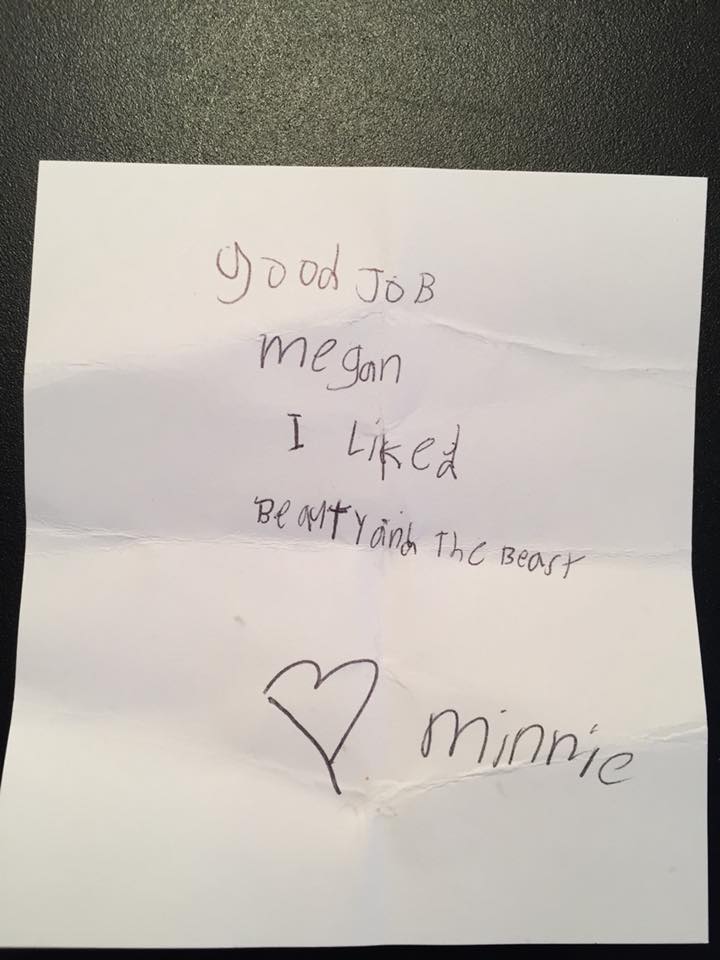 good JOB
megan
I Liked
Beauty and The Beast
minnie